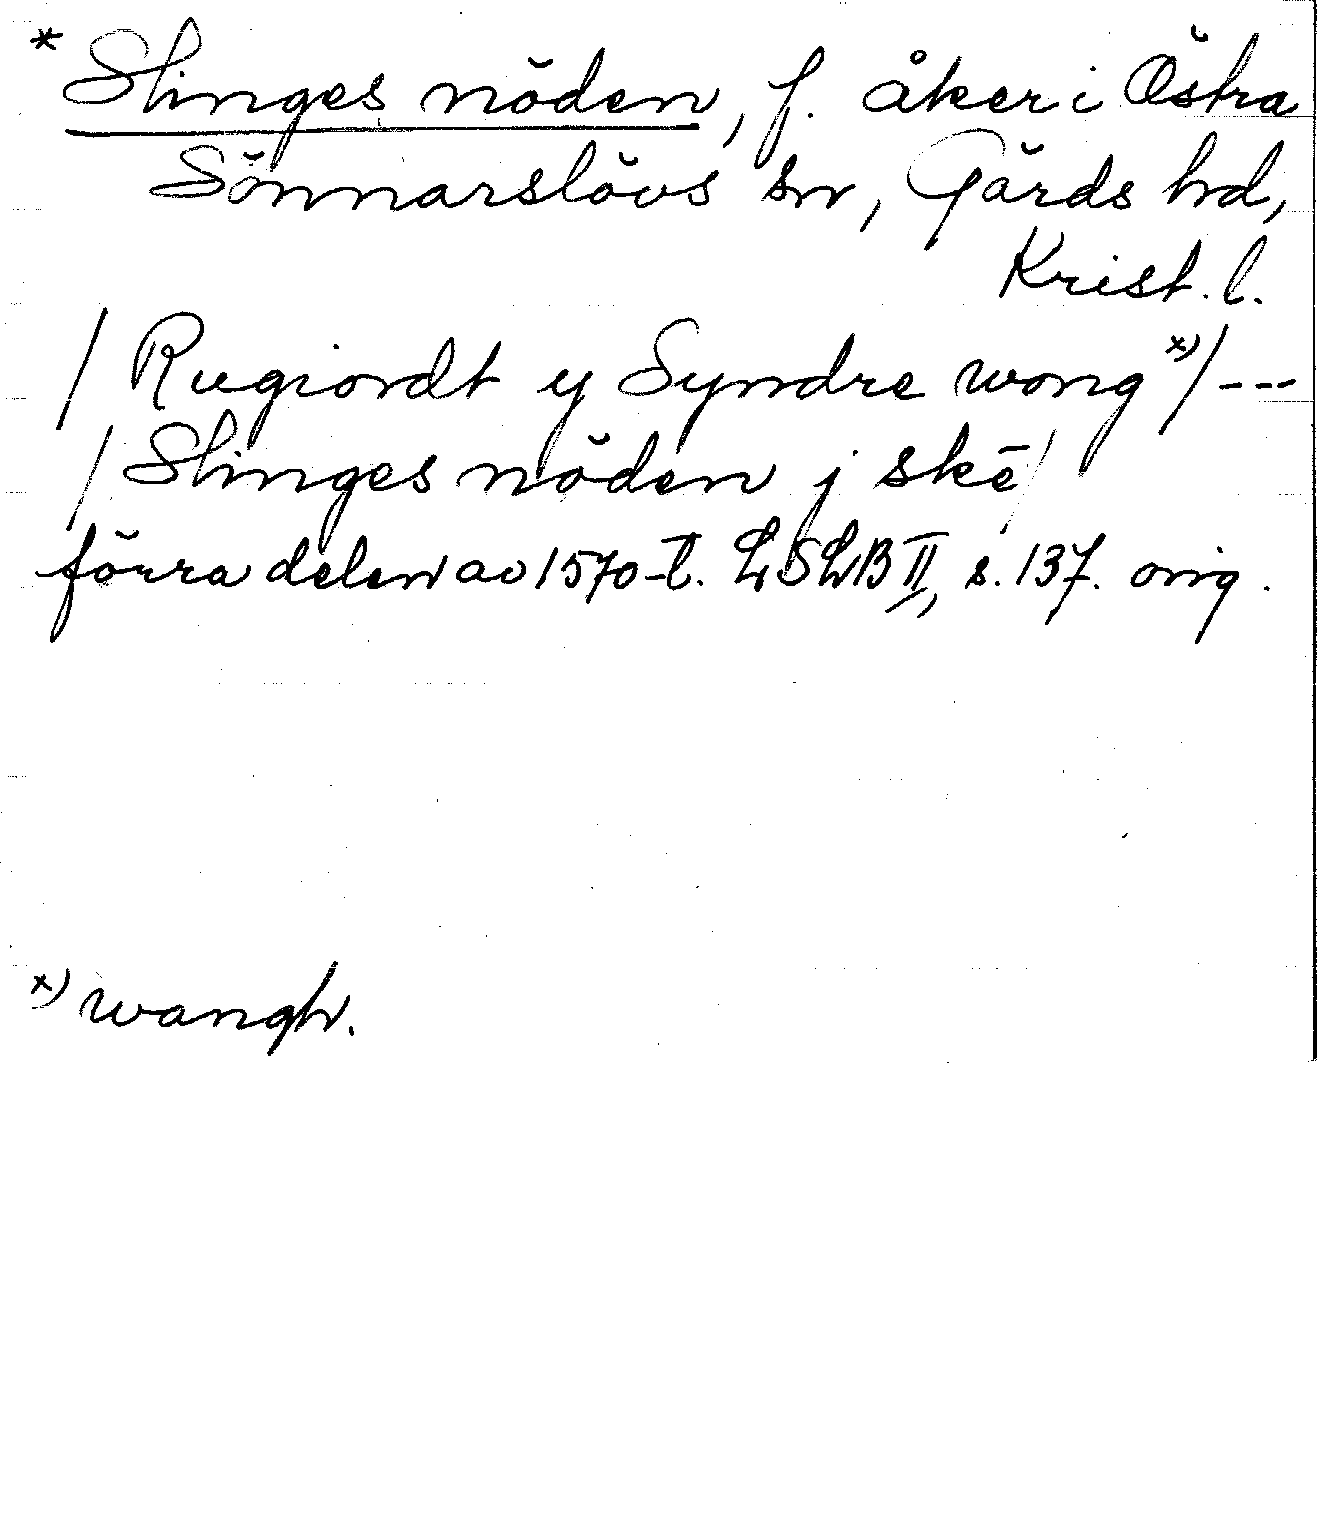 * Slinges nöden, f. åker i Östra
Sönnarslövs sn, Gärds hd,
Krist. l.
/ Rugiordt y Syndre wong x) / ---
/ Slinges nöden j skē /
förra delen av 1570-t. LSLB II, s. 137. orig.
x) wangh.